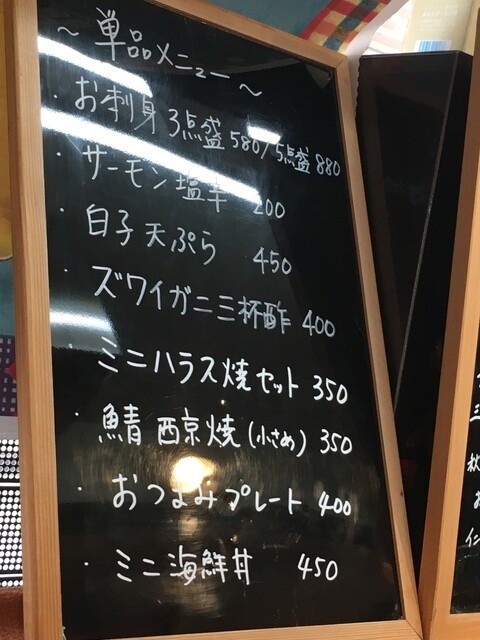 ~ 単品メニュー ~
・お刺身 3点盛 580/5点盛 880
・サーモン塩辛 200
・白子天ぷら 450
・ズワイガニ三杯酢 400
・ミニハラス焼セット 350
・鯖 西京焼(小さめ) 350
・おつまみプレート 400
・ミニ海鮮丼 450